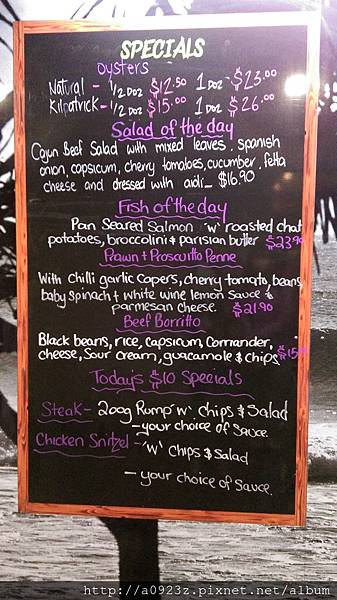 SPECIALS
oysters
Natural - 1/2 Doz $12.50 1 Doz - $23.00
Kilpatrick - 1/2 Doz $15.00 1 Doz - $26.00
Salad of the day
Cajun Beef Salad with mixed leaves, spanish
onion, capsicum, cherry tomatoes, cucumber, fetta
cheese and dressed with aioli_ $16.90
Fish of the day
Pan Seared Salmon 'w' roasted chat
potatoes, broccolini & parisian butter $23.90
Prawn & Proscuitto Penne
With chilli garlic capers, cherry tomato, beans,
baby spinach & white wine lemon sauce &
parmesan cheese. $21.90
Beef Borritto
Black beans, rice, capsicum, Corriander,
cheese, sour cream, guacamole & chips
Todays $10 Specials
Steak - 200g Rump 'w' chips & Salad
- your choice of sauce
Chicken Snitzel - 'w' chips & Salad
- your choice of sauce.
http://a0923z.pixnet.net/album